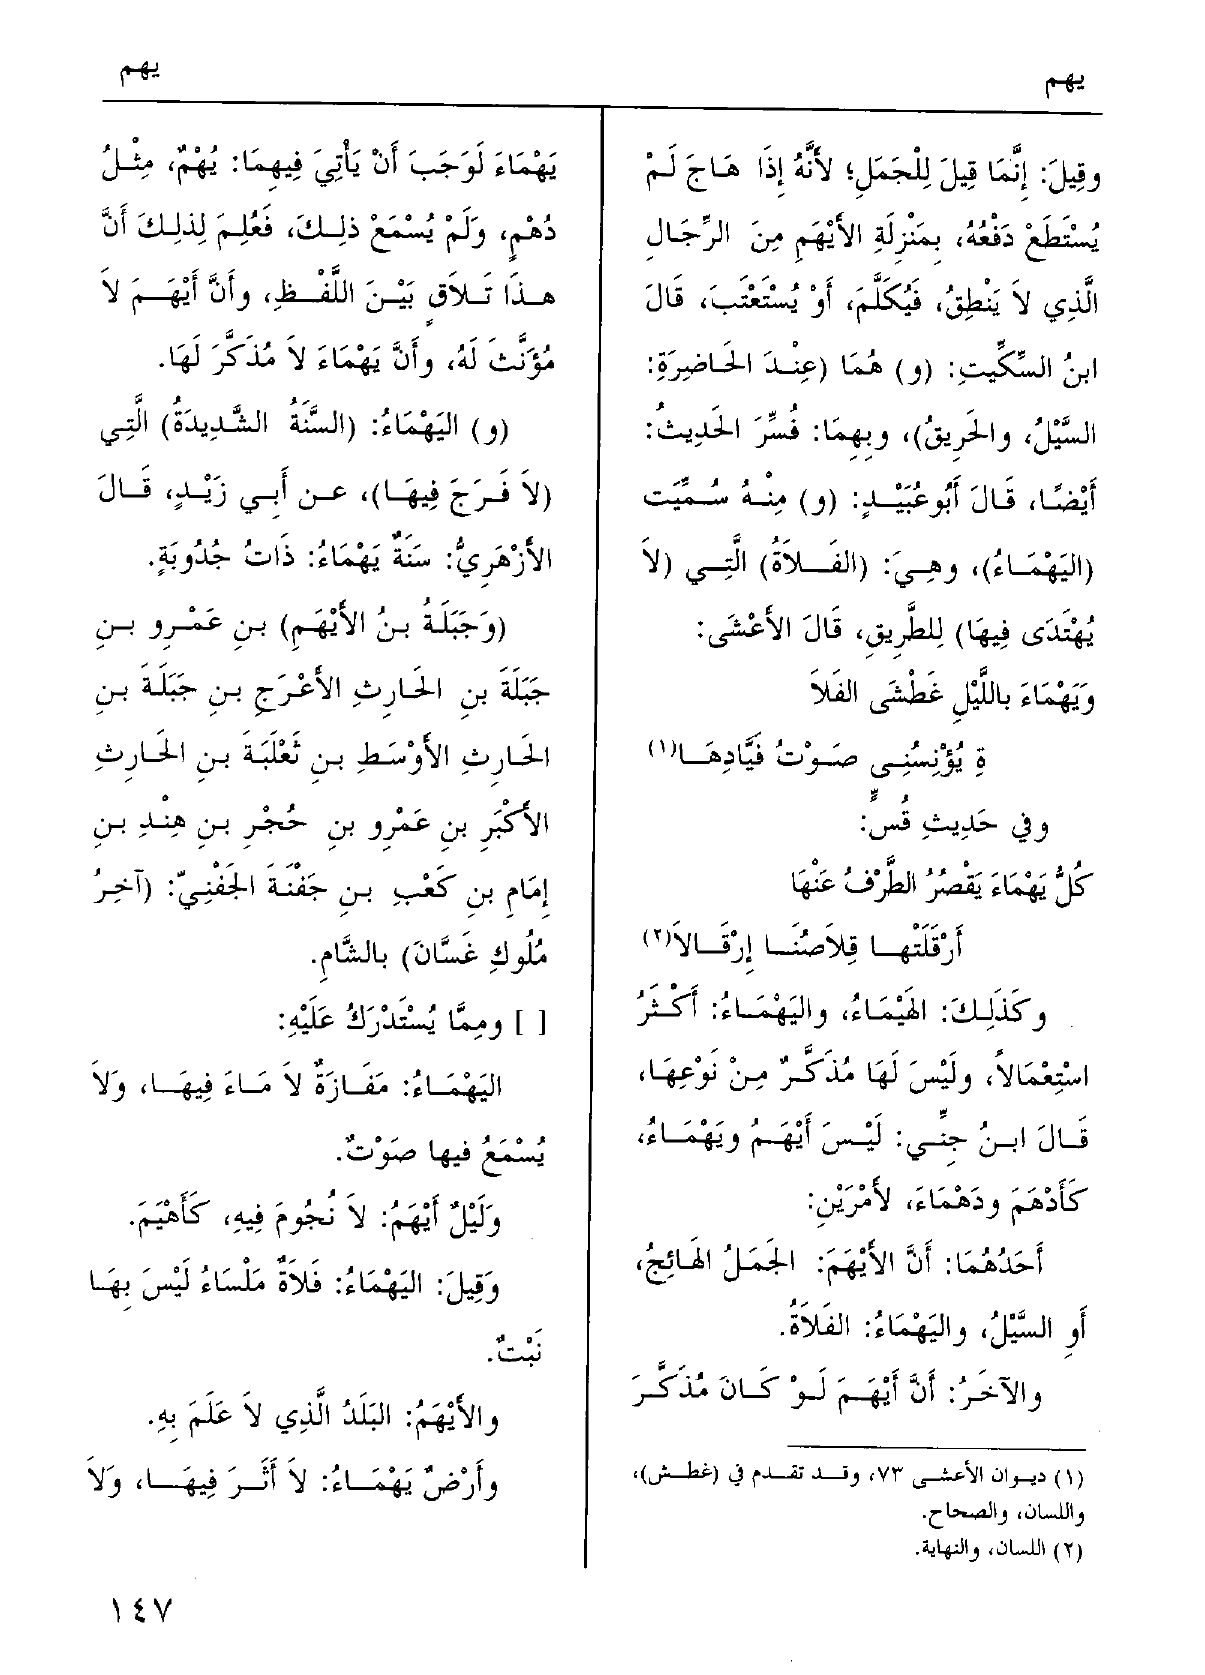 يهم
يهم
وقِيلَ: إِنَّمَا قِيلَ لِلْجَمَلِ؛ لأَنَّهُ إِذَا هَاجَ لَمْ
يُسْتَطَعْ دَفْعُهُ، بِمَنْزِلَةِ الأَيْهَمِ مِنَ الرِّجَالِ
الَّذِي لاَ يَنْطِقُ، فَيُكَلَّمَ، أَوْ يُسْتَعْتَبَ، قَالَ
ابنُ السِّكِّيتِ: (و) هُمَا (عِنْدَ الحَاضِرَةِ:
السَّيْلُ، والحَرِيقُ)، وبِهِمَا: فُسِّرَ الحَدِيثُ:
أَيْضًا، قَالَ أَبُوعُبَيْدٍ: (و) مِنْهُ سُمِّيَت
(اليَهْمَاءُ)، وهِيَ: (الفَلاَةُ) الَّتِي (لاَ
يُهْتَدَى فِيهَا) لِلطَّرِيقِ، قَالَ الأَعْشَى:
وَيَهْمَاءَ بالليْلِ غَطْشَى الفَلاَ
ةِ يُؤْنِسُنِى صَوْتُ فَيَّادِهَا(١)
وفي حَدِيثِ قُسٍّ:
كُلُّ يَهْمَاءَ يَقْصُرُ الطَّرْفُ عَنْهَا
أَرْقَلَتْها قِلاَصُنَا إِرْقَالاَ(٢)
وكَذَلِكَ: الهَيْمَاءُ، واليَهْمَاءُ: أَكْثَرُ
اسْتِعْمَالاً، ولَيْسَ لَهَا مُذَكَّرٌ مِنْ نَوْعِهَا،
قَالَ ابنُ جِنِّي: لَيْسَ أَيْهَمُ ويَهْمَاءُ،
كَأَدْهَمَ ودَهْمَاءَ، لأَمْرَيْنِ:
أَحَدُهُمَا: أَنَّ الأَيْهَمَ: الجَمَلُ الهَائِجُ،
أَوِ السَّيْلُ، واليَهْمَاءُ: الفَلاَةُ.
والآخَرُ: أَنَّ أَيْهَمَ لَوْ كَانَ مُذَكَّرَ
(١) ديوان الأعشى ٧٣، وقد تقدم في (غطش)،
واللسان، والصحاح.
(٢) اللسان، والنهاية.
يَهْمَاءَ لَوَجَبَ أَنْ يَأْتِيَ فِيهِمَا: يُهْمٌ، مِثْلُ
دُهْمٍ، ولَمْ يُسْمَعْ ذلِكَ، فَعُلِمَ لِذلِكَ أَنَّ
هذَا تَلاَقٍ بَيْنَ اللَّفْظِ، وأَنَّ أَيْهَمَ لاَ
مُؤَنَّثَ لَهُ، وأَنَّ يَهْمَاءَ لاَ مُذَكَّرَ لَهَا.
(و) اليَهْمَاءُ: (السَّنَةُ الشَّدِيدَةُ) الَّتِي
(لاَ فَرَجَ فِيهَا)، عن أَبي زَيْدٍ، قَالَ
الأَزْهَرِيُّ: سَنَةٌ يَهْمَاءُ: ذَاتُ جُدُوبَةٍ.
(وَجَبَلَةُ بنُ الأَيْهَمِ) بنِ عَمْرِو بنِ
جَبَلَةَ بنِ الحَارِثِ الأَعْرَجِ بنِ جَبَلَةَ بنِ
الحَارِثِ الأَوْسَطِ بنِ ثَعْلَبَةَ بنِ الحَارِثِ
الأَكْبَرِ بنِ عَمْرِو بنِ حُجْرِ بنِ هِنْدِ بنِ
إِمَامِ بنِ كَعْبِ بنِ جَفْنَةَ الجَفْنِيّ: (آخِرُ
مُلُوكِ غَسَّانَ) بالشَّامِ.
[ ] ومِمَّا يُسْتَدْرَكُ عَلَيْهِ:
اليَهْمَاءُ: مَفَازَةٌ لاَ مَاءَ فِيهَا، ولاَ
يُسْمَعُ فيها صَوْتٌ.
وَلَيْلٌ أَيْهَمُ: لاَ نُجُومَ فِيهِ، كَأَهْيَمَ.
وَقِيلَ: اليَهْمَاءُ: فَلاَةٌ مَلْسَاءُ لَيْسَ بِهَا
نَبْتٌ.
والأَيْهَمُ: البَلَدُ الَّذِي لاَ عَلَمَ بِهِ.
وأَرْضٌ يَهْمَاءُ: لاَ أَثَرَ فِيهَا، وَلاَ
١٤٧